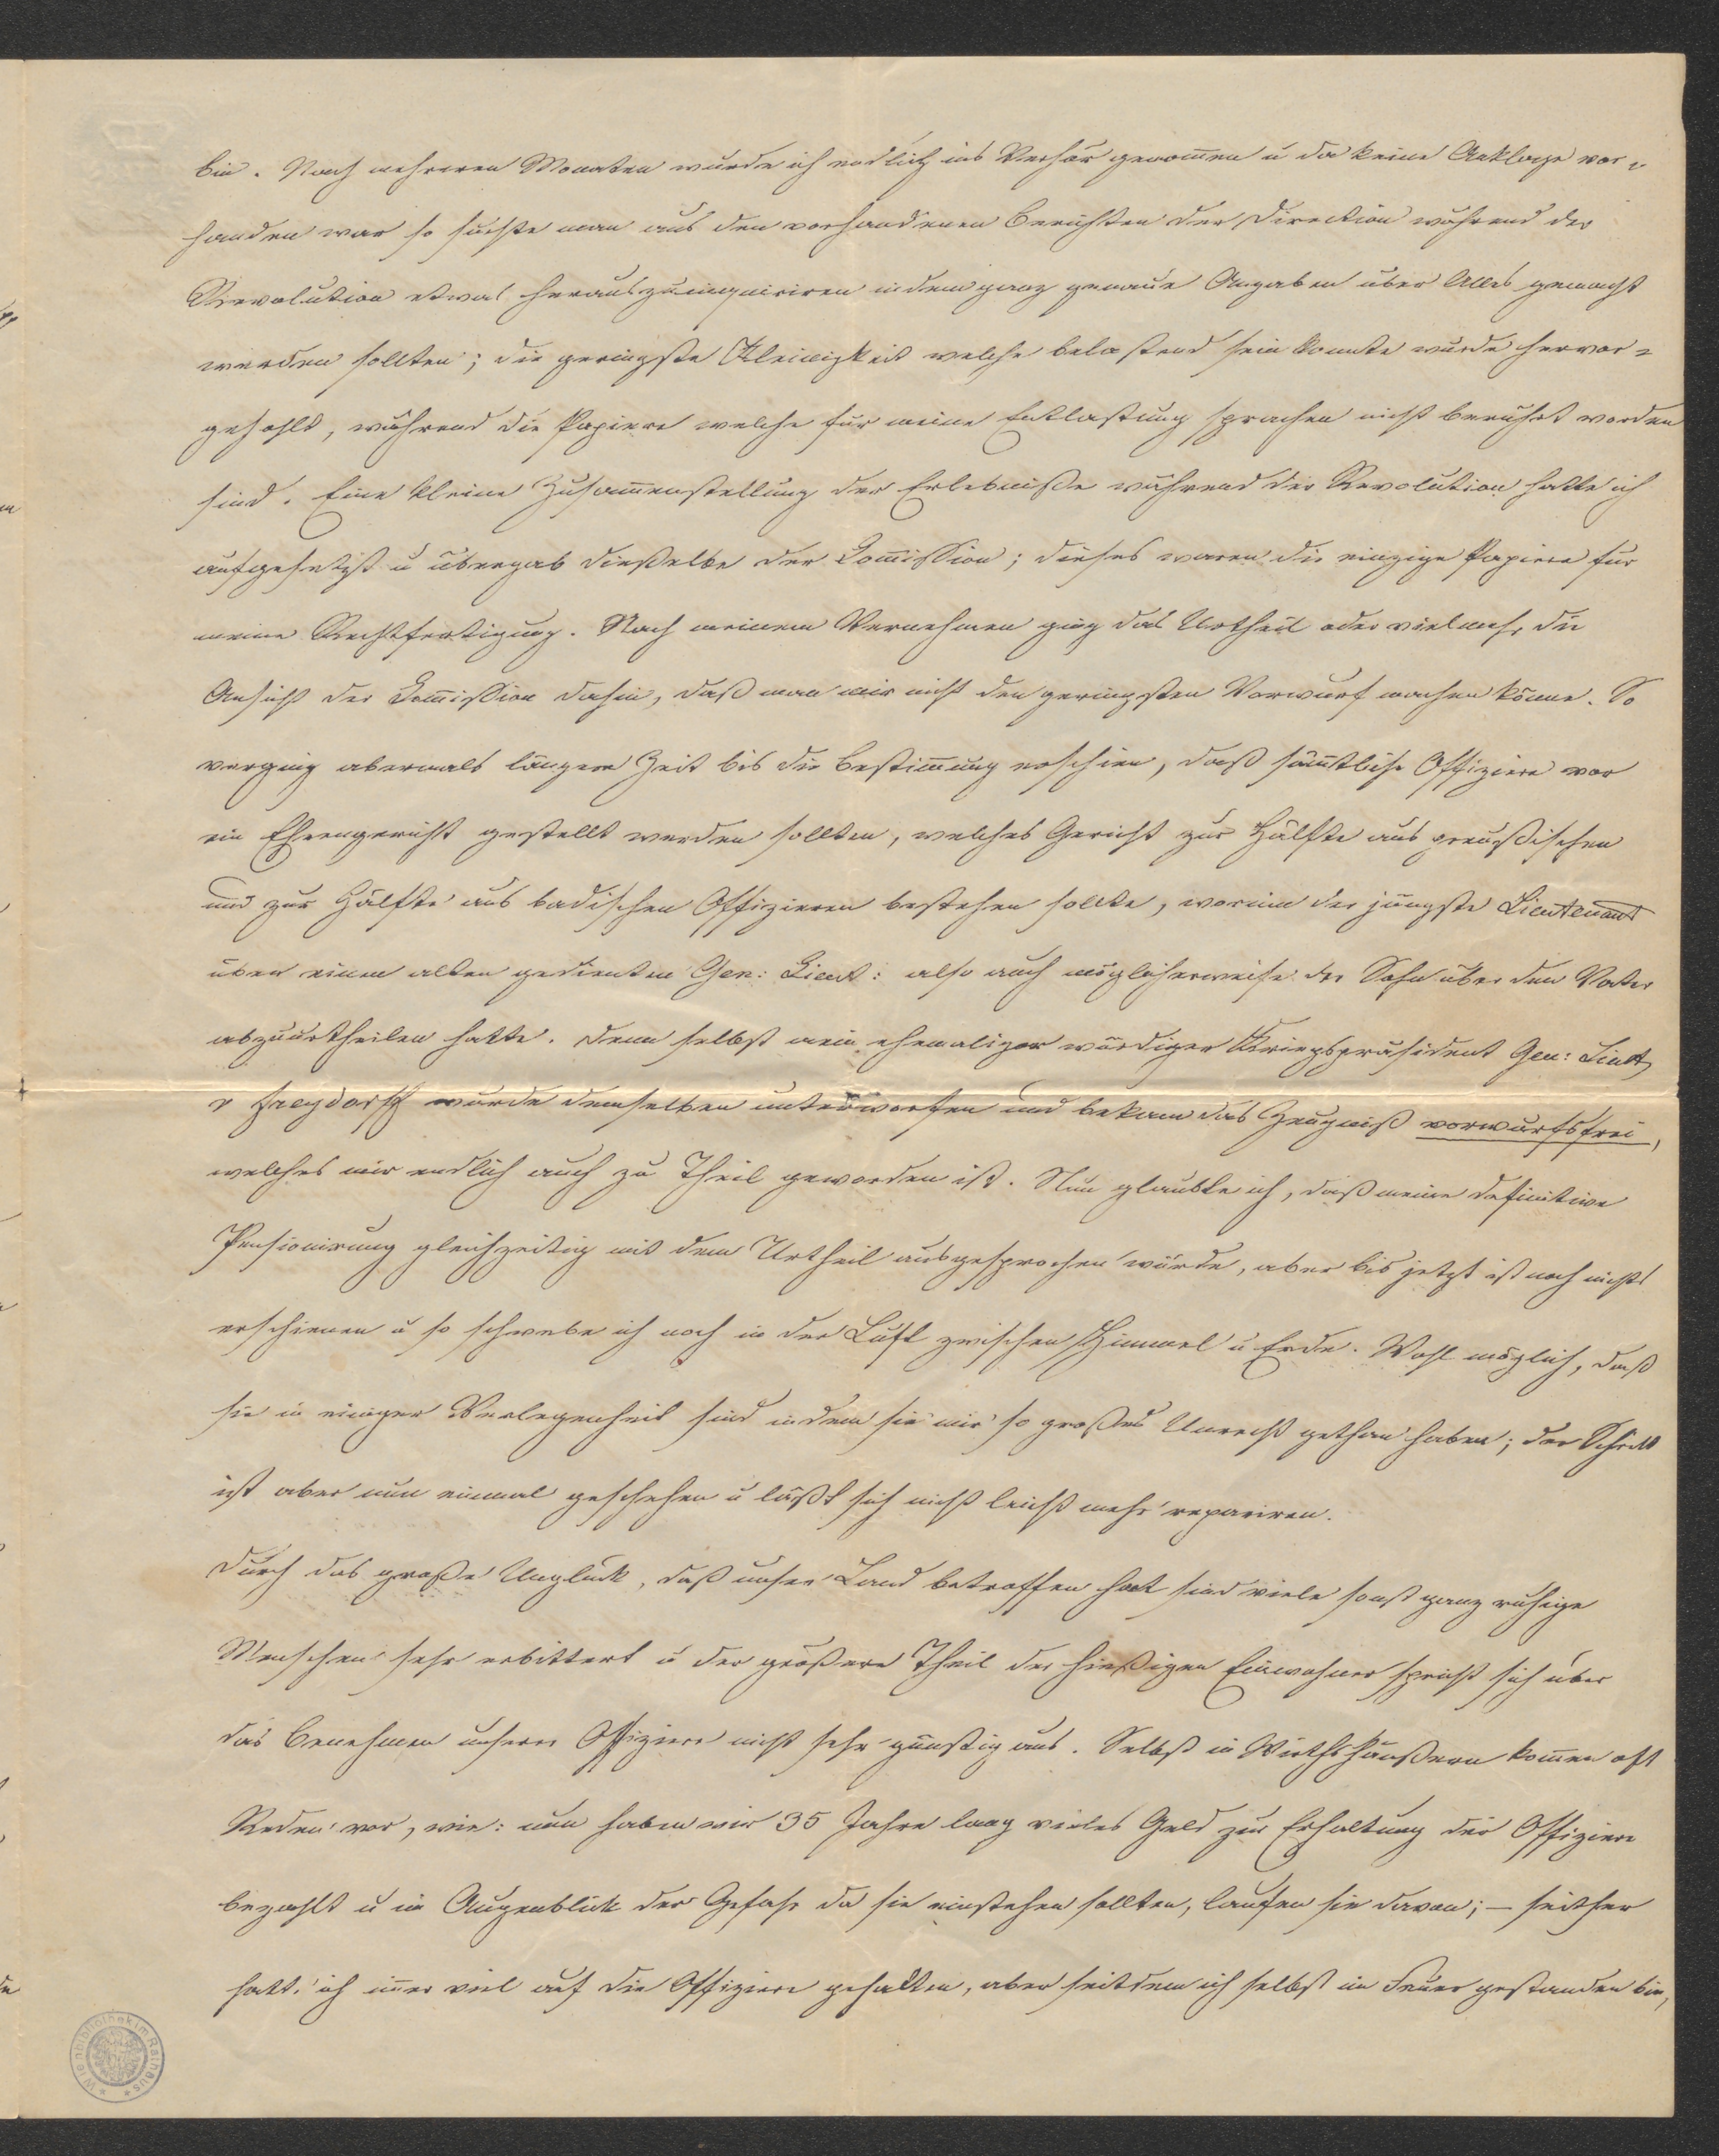 bin. Nach mehreren Monaten wurde ich endlich ins Verhör genom̄en u da keine Anklage vor=
handen war so suchte man aus den vorhandenen Berichten der Direction während der
Revolution etwas herauszuinquiriren indem ganz genaue Angaben über Alles gemacht
werden sollten; die geringste Kleinigkeit welche belastend sein konnte wurde hervor=
geholt, während die Papiere welche für meine Entlastung sprachen nicht berührt worden
sind. Eine kleine Zusam̄enstellung der Erlebniße während der Revolution hatte ich
aufgesetzt u übergab dieselbe der Com̄ission; dieses waren die einzige Papiere für
meine Rechtfertigung. Nach meinem Vernehmen ging das Urtheil oder vielmehr die
Ansicht der Com̄ission dahin, daß man mir nicht den geringsten Vorwurf machen könne. So
verging abermals längere Zeit bis die Bestim̄ung erschien, daß säm̄tliche Offiziere vor
ein Ehrengericht gestellt werden sollten, welches Gericht zur Hälfte aus preußischen
und zur Hälfte aus badischen Offizieren bestehen sollte, worin der jüngste Lieutenant
über einen alten gedienten Gen: Lieut: also auch möglicherweise der Sohn über den Vater
abzuurtheilen hatte. Denn selbst mein ehemaliger würdiger Kriegspräsident Gen: Lieut
v Freydorff wurde demselben unterworfen und bekam das Zeugniß vorwurfsfrei,
welches mir endlich auch zu Theil geworden ist. Nun glaubte ich, daß meine definitive
Pensionirung gleichzeitig mit dem Urtheil ausgesprochen würde, aber bis jetzt ist noch nichts
erschienen u so schwebe ich noch in der Luft zwischen Himmel u Erde. Wohl möglich, daß
sie in einiger Verlegenheit sind indem sie mir so großes Unrecht gethan haben; der Schritt
ist aber nun einmal geschehen u läßt sich nicht leicht mehr repariren.
Durch das große Unglück, daß unser Land betroffen hat sind viele sonst ganz ruhige
Menschen sehr erbittert u der größere Theil der hießigen Einwohner spricht sich über
das Benehmen unserer Offiziere nicht sehr günstig aus. Selbst in Wirthshäußern kom̄en oft
Reden vor, wie: nun haben wir 35 Jahre lang vieles Geld zur Erhaltung der Offiziere
bezahlt u im Augenblick der Gefahr da sie einstehen sollten, laufen sie davon; – seither
hatt' ich im̄er viel auf die Offiziere gehalten, aber seitdem ich selbst im Feuer gestanden bin,
Wienbibliothek im Rathaus